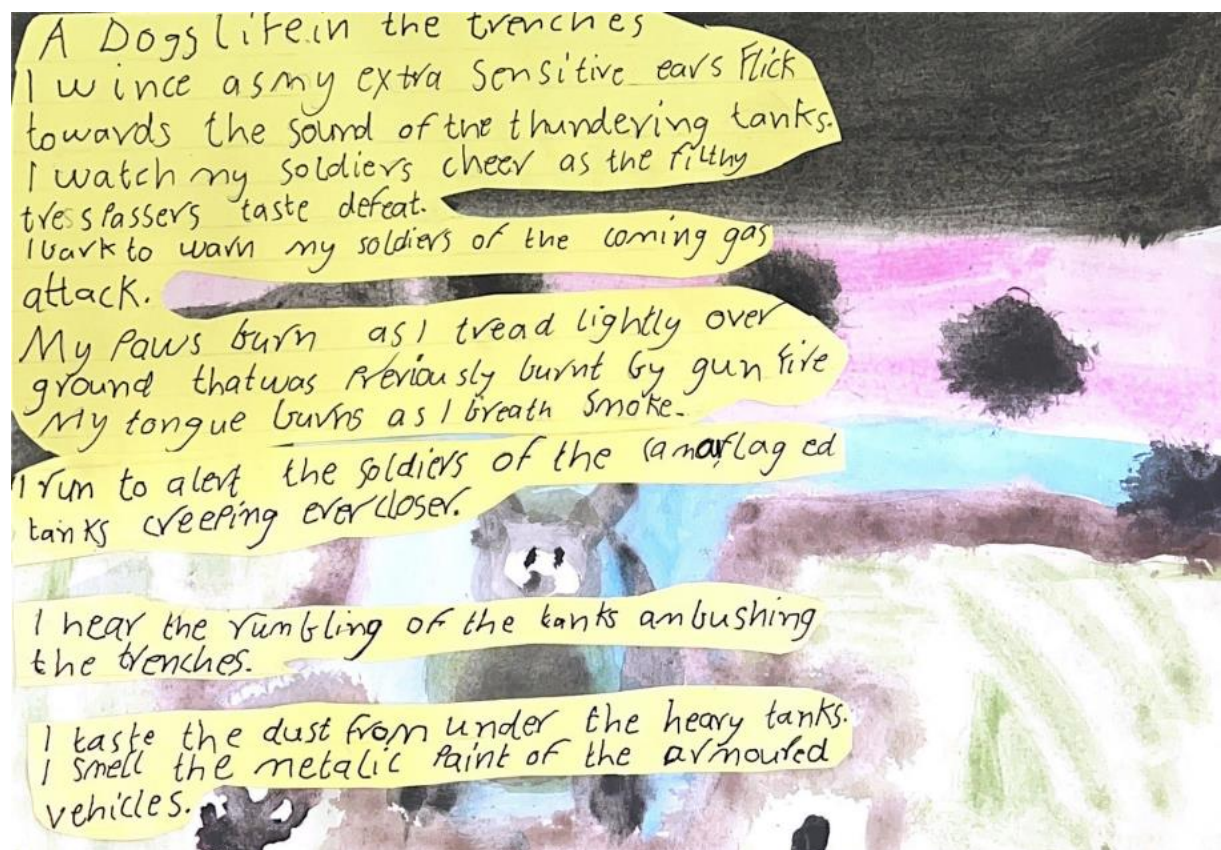 A Dogs life in the trenches
I wince as my extra sensitive ears flick
towards the sound of the thundering tanks.
I watch my soldiers cheer as the filthy
tresspassers taste defeat.
I bark to warn my soldiers of the coming gas
attack.
My Paws burn as I tread lightly over
ground that was Previously burnt by gun fire
My tongue burns as I breath smoke.
I run to alert the soldiers of the camarflaged
tanks creeping ever closer.
I hear the rumbling of the tanks ambushing
the trenches.
I taste the dust from under the heavy tanks.
I smell the metalic Paint of the armoured
vehicles.